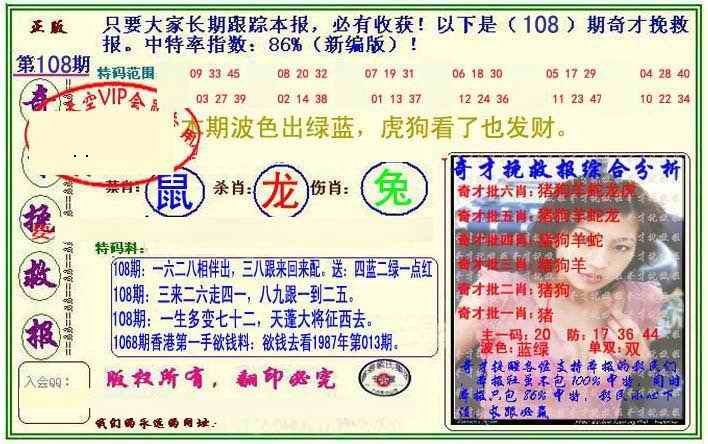 正版
只要大家长期跟踪本报，必有收获！以下是（108）期奇才挽救
报。中特率指数：86%（新编版）！
第108期
特码范围
09 33 45 08 20 32 07 19 31 06 18 30 05 17 29 04 28 40
03 27 39 02 14 38 01 13 37 12 24 36 11 23 47 10 22 34
奇
空VIP会
本期波色出绿蓝，虎狗看了也发财。
鼠
杀肖：
龙
伤肖：
兔
挽
救
报
奇才挽救报综合分析
奇才批六肖：猪狗羊蛇龙虎
奇才批五肖：猪狗羊蛇龙
奇才批四肖：猪狗羊蛇
奇才批三肖：猪狗羊
奇才批二肖：猪狗
奇才批一肖：猪
主一码：20 防：17 36 44
波色：蓝绿 单双：双
奇才提醒各位支持本报的彩民们
本报社虽不包100%中特，同时
本报只包86%中特，彩民小心下
注，长跟必赢
特码料：
108期：一六二八相伴出，三八跟来回来配。送：四蓝二绿一点红
108期：三来二六走四一，八九跟一到二五。
108期：一生多变七十二，天蓬大将征西去。
1068期香港第一手欲钱料：欲钱去看1987年第013期。
入会QQ：
版权所有，翻印必究
我们的永远的网址：